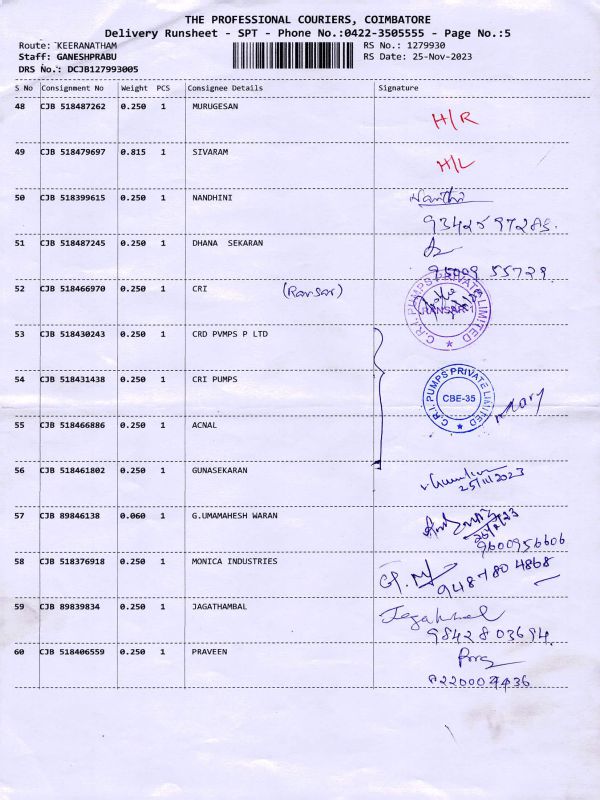 THE PROFESSIONAL COURIERS, COIMBATORE
Delivery Runsheet - SPT - Phone No.:0422-3505555 - Page No.:5
Route: KEERANATHAM RS No.: 1279930
Staff: GANESHPRABU RS Date: 25-Nov-2023
DRS No.: DCJB127993005
S No Consignment No Weight PCS Consignee Details Signature
48 CJB 518487262 0.250 1 MURUGESAN H/R
49 CJB 518479697 0.815 1 SIVARAM H/L
50 CJB 518399615 0.250 1 NANDHINI
9342597285.
51 CJB 518487245 0.250 1 DHANA SEKARAN
95009 55729
52 CJB 518466970 0.250 1 CRI (Ransar)
C.R.I. PUMPS PRIVATE LIMITED
RANSAR-1
53 CJB 518430243 0.250 1 CRD PVMPS P LTD
54 CJB 518431438 0.250 1 CRI PUMPS
C.R.I. PUMPS PRIVATE LIMITED
CBE-35
Mary
55 CJB 518466886 0.250 1 ACNAL
56 CJB 518461802 0.250 1 GUNASEKARAN
25/11/2023
57 CJB 89846138 0.060 1 G.UMAMAHESH WARAN
9600956606
58 CJB 518376918 0.250 1 MONICA INDUSTRIES
9487804868
59 CJB 89839834 0.250 1 JAGATHAMBAL
98428 03694.
60 CJB 518406559 0.250 1 PRAVEEN
8220004436